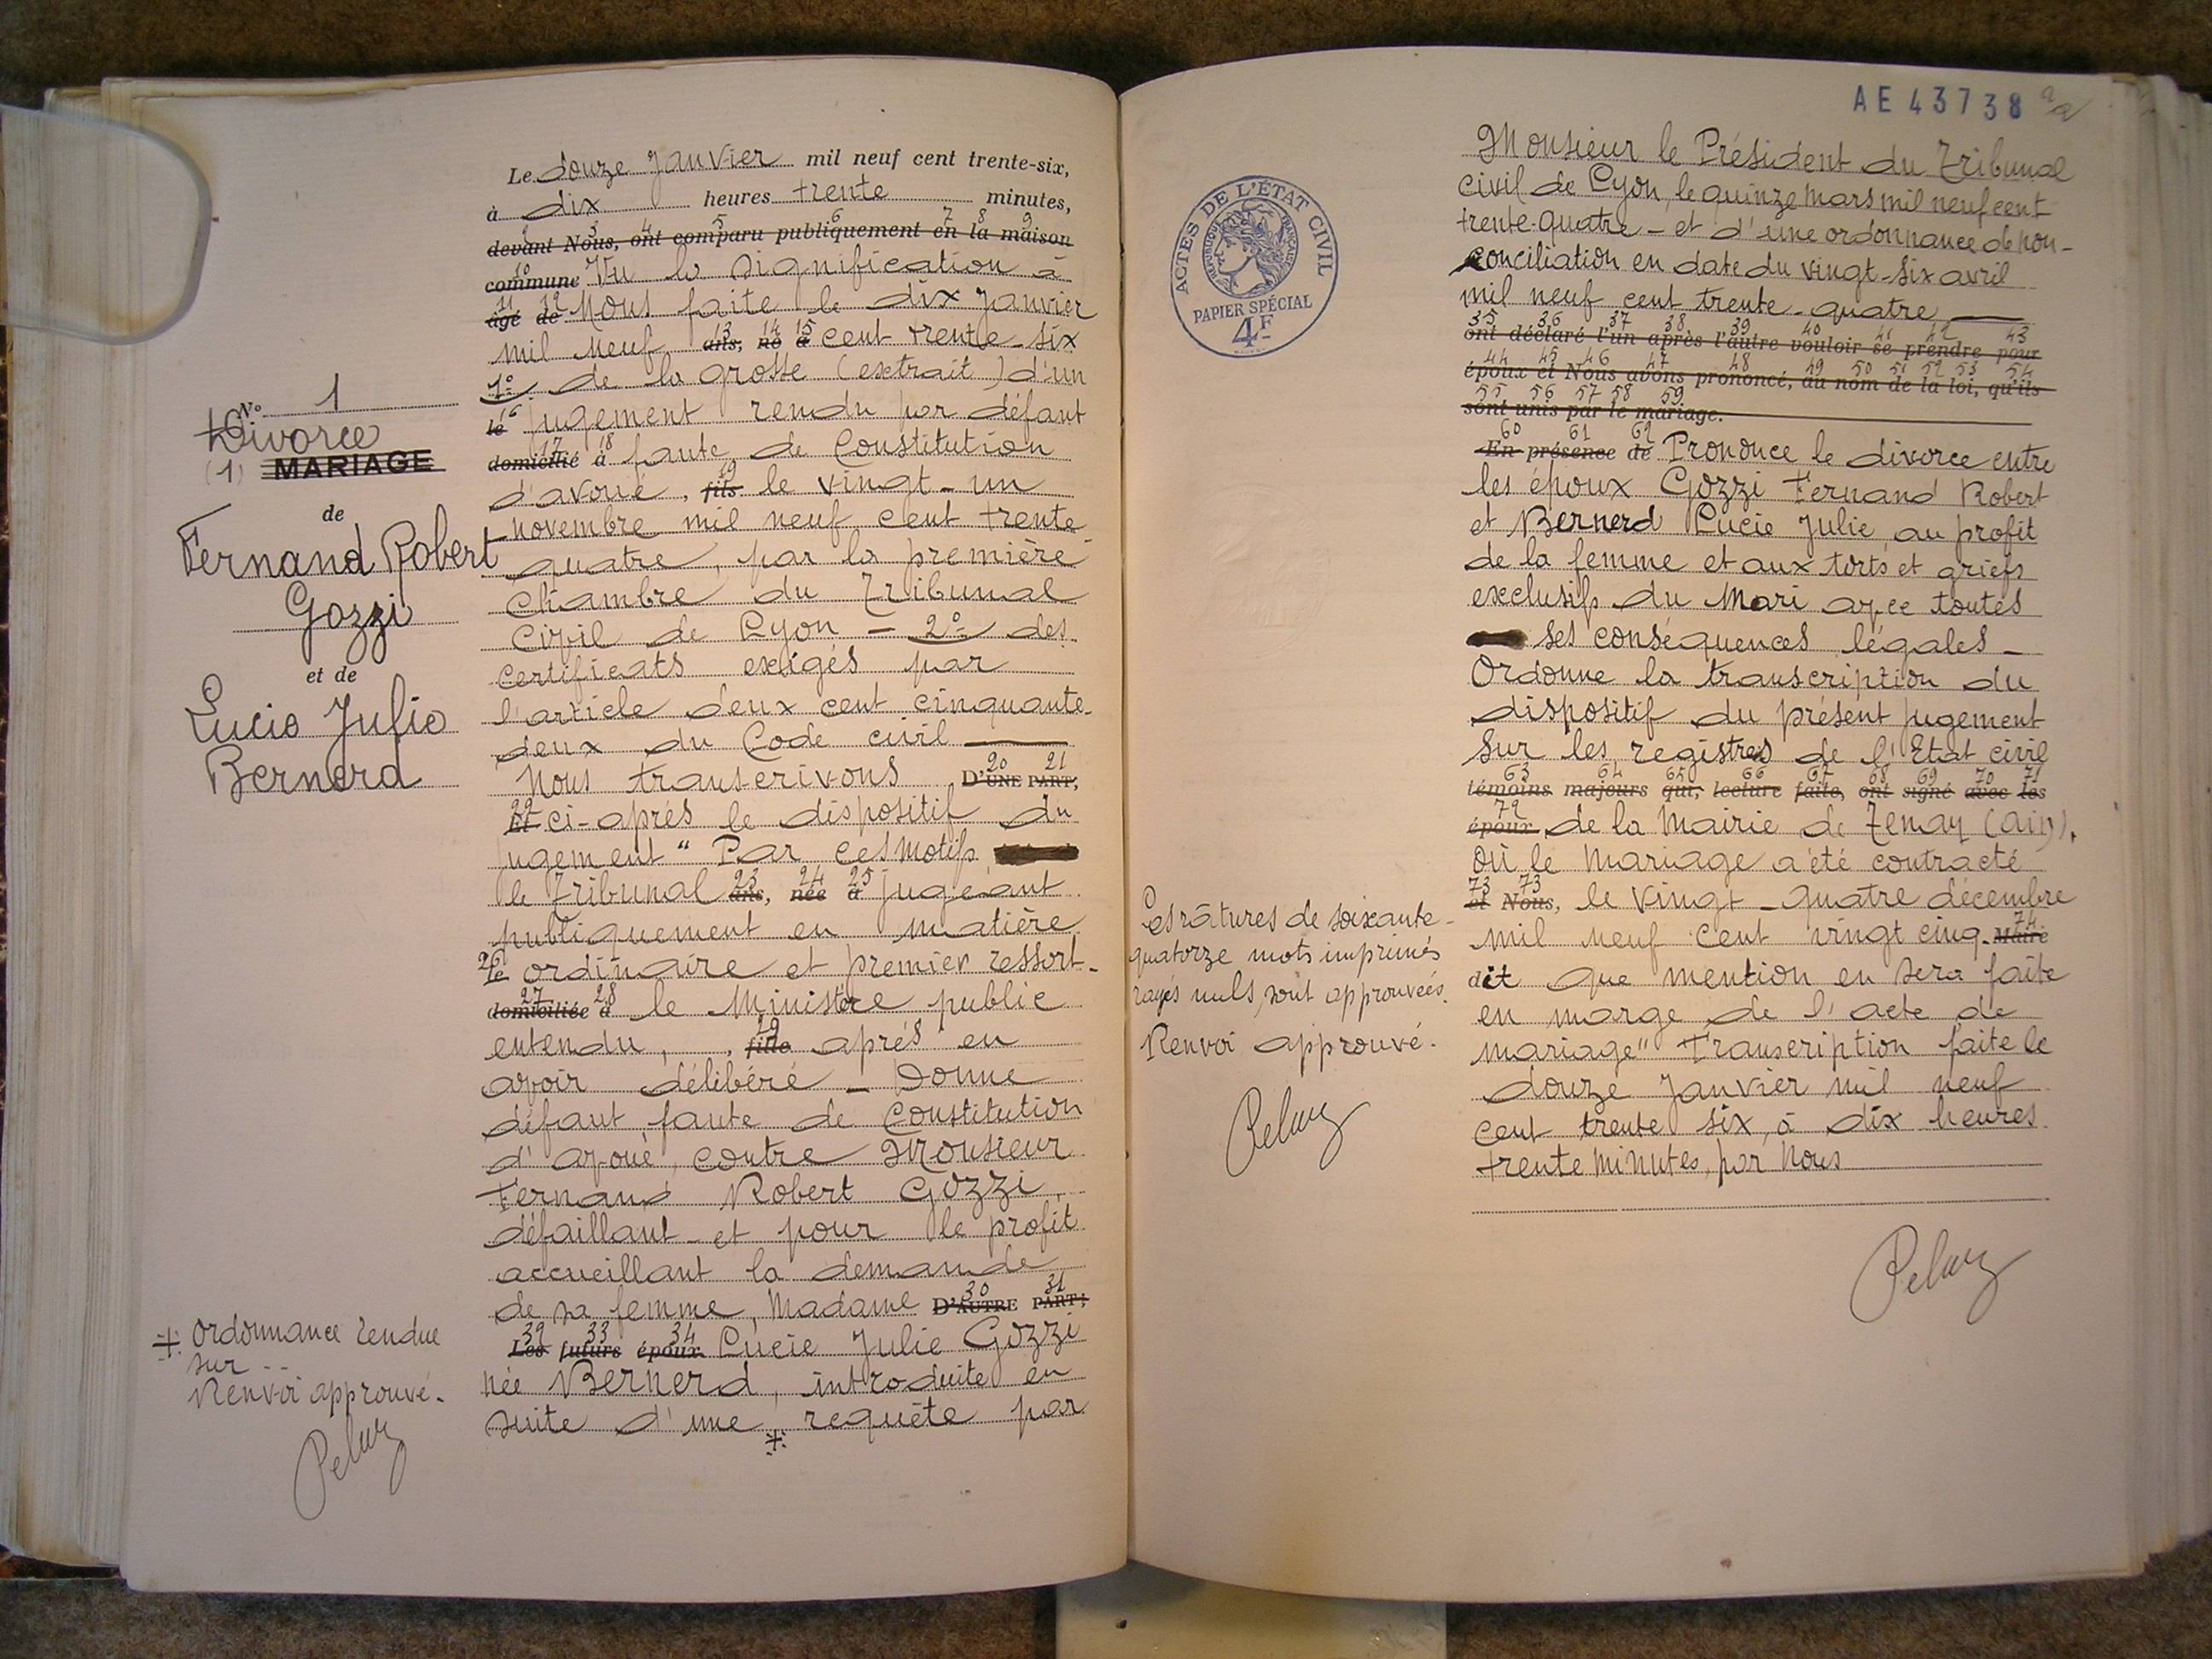 N° 1
Divorce
(1) MARIAGE
de
Fernand Robert
Gozzi
et de
Lucie Julie
Bernerd
Le douze Janvier mil neuf cent trente-six,
à dix heures trente minutes,
2 3 4 5 6 7 8 9
devant Nous, ont comparu publiquement en la maison
10
commune Vu la signification à
11 12
âgé de Nous faite le dix Janvier
13 14 15
mil neuf ans, né à cent trente-six
1° de la grosse (extrait) d'un
16
le jugement rendu par défaut
17 18
domicilié à faute de Constitution
19
d'avoué, fils le vingt-un
novembre mil neuf cent trente
quatre, par la première
Chambre du Tribunal
Civil de Lyon - 2° des
certificats exigés par
l'article deux cent cinquante-
deux du Code civil
20 21
Nous transcrivons D'UNE PART,
22
Et ci-après le dispositif du
jugement " Par ces motifs
23 24 25
le Tribunal ans, née à jugeant
publiquement en matière
26
le ordinaire et premier ressort-
27 28
domiciliée à le Ministère public
29
entendu, , fille après en
avoir délibéré - Donne
défaut faute de Constitution
d'avoué, contre Monsieur
Fernand Robert Gozzi,
défaillant - et pour le profit
accueillant la demande
30 31
de sa femme, Madame D'AUTRE PART;
32 33 34
Les futurs époux Lucie Julie Gozzi
née Bernerd, introduite en
suite d'une requête par
+
+ Ordonnance rendue
sur --
Renvoi approuvé.
AE 43738
ACTES DE L'ÉTAT CIVIL
RÉPUBLIQUE FRANÇAISE
PAPIER SPÉCIAL
4F
Monsieur le Président du Tribunal
civil de Lyon, le quinze Mars mil neuf cent
trente-quatre - et d'une ordonnance de non-
conciliation en date du vingt-six avril
mil neuf cent trente-quatre
35 36 37 38 39 40 41 42 43
ont déclaré l'un après l'autre vouloir se prendre pour
44 45 46 47 48 49 50 51 52 53 54
époux et Nous avons prononcé, au nom de la loi, qu'ils
55 56 57 58 59
sont unis par le mariage.
60 61 62
En présence de Prononce le divorce entre
les époux Gozzi Fernand Robert
et Bernerd Lucie Julie au profit
de la femme et aux torts et griefs
exclusifs du Mari avec toutes
ses conséquences légales -
Ordonne la transcription du
dispositif du présent jugement
sur les registres de l'Etat civil
63 64 65 66 67 68 69 70 71
témoins majeurs qui, lecture faite, ont signé avec les
72
époux de la Mairie de Tenay (ain).
où le mariage a été contracté
73 73
et Nous, le vingt-quatre décembre
74
mil neuf cent vingt cinq. Maire
dit que mention en sera faite
en marge de l'acte de
mariage" Transcription faite le
douze Janvier mil neuf
cent trente six, à dix heures
trente minutes, par Nous
Les ratures de soixante-
quatorze mots imprimés
rayés nuls, sont approuvées.
Renvoi approuvé.